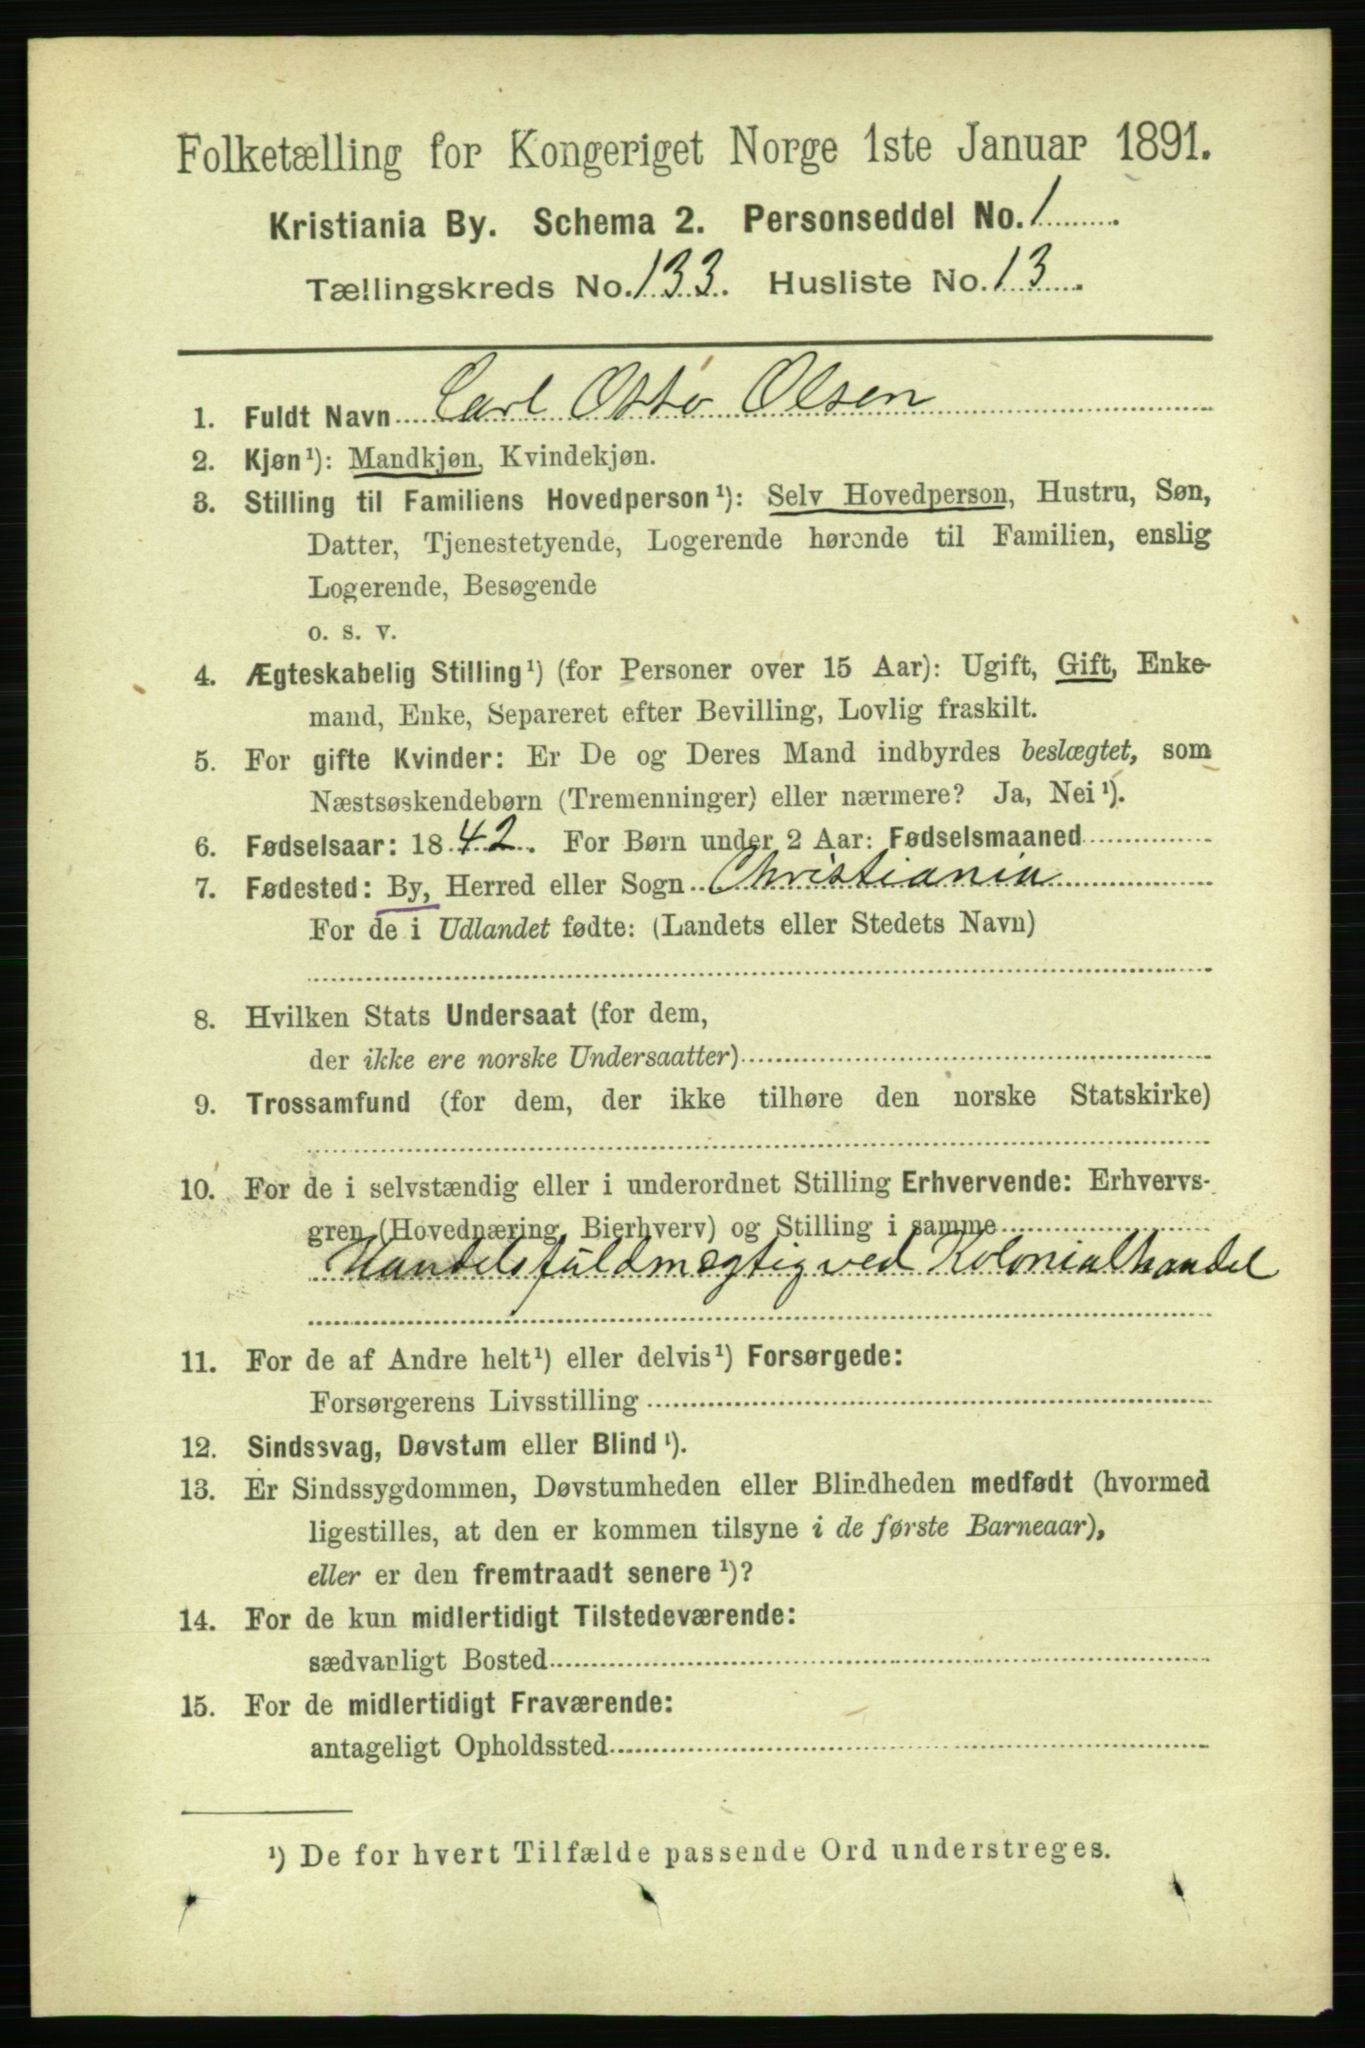 Folketælling for Kongeriget Norge 1ste Januar 1891.
Kristiania By. Schema 2. Personseddel No. 1
Tællingskreds No. 133. Husliste No. 13.
1. Fuldt Navn Carl Otto Olsen
2. Kjøn¹): Mandkjøn, Kvindekjøn.
3. Stilling til Familiens Hovedperson¹): Selv Hovedperson, Hustru, Søn,
Datter, Tjenestetyende, Logerende hørende til Familien, enslig
Logerende, Besøgende
o. s. v.
4. Ægteskabelig Stilling¹) (for Personer over 15 Aar): Ugift, Gift, Enke-
mand, Enke, Separeret efter Bevilling, Lovlig fraskilt.
5. For gifte Kvinder: Er De og Deres Mand indbyrdes beslægtet, som
Næstsøskendebørn (Tremenninger) eller nærmere? Ja, Nei¹).
6. Fødselsaar: 1842. For Børn under 2 Aar: Fødselsmaaned
7. Fødested: By, Herred eller Sogn Christiania
For de i Udlandet fødte: (Landets eller Stedets Navn)
8. Hvilken Stats Undersaat (for dem,
der ikke ere norske Undersaatter)
9. Trossamfund (for dem, der ikke tilhøre den norske Statskirke)
10. For de i selvstændig eller i underordnet Stilling Erhvervende: Erhvervs-
gren (Hovednæring, Bierhverv) og Stilling i samme
Handelsfuldmægtig ved Kolonialhandel
11. For de af Andre helt¹) eller delvis¹) Forsørgede:
Forsørgerens Livsstilling
12. Sindssvag, Døvstum eller Blind¹).
13. Er Sindssygdommen, Døvstumheden eller Blindheden medfødt (hvormed
ligestilles, at den er kommen tilsyne i de første Barneaar),
eller er den fremtraadt senere¹)?
14. For de kun midlertidigt Tilstedeværende:
sædvanligt Bosted
15. For de midlertidigt Fraværende:
antageligt Opholdssted
¹) De for hvert Tilfælde passende Ord understreges.